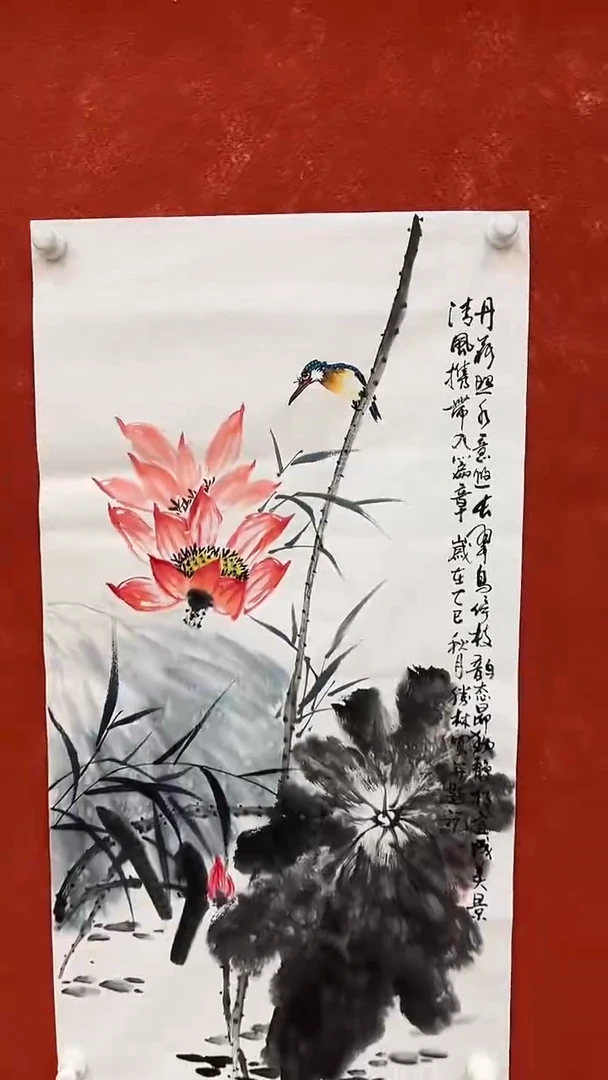 丹荷照水意悠长翠鸟停枝韵态昂动静相宜成美景
清风携带入篇章 岁在乙巳秋月胜林写并题记